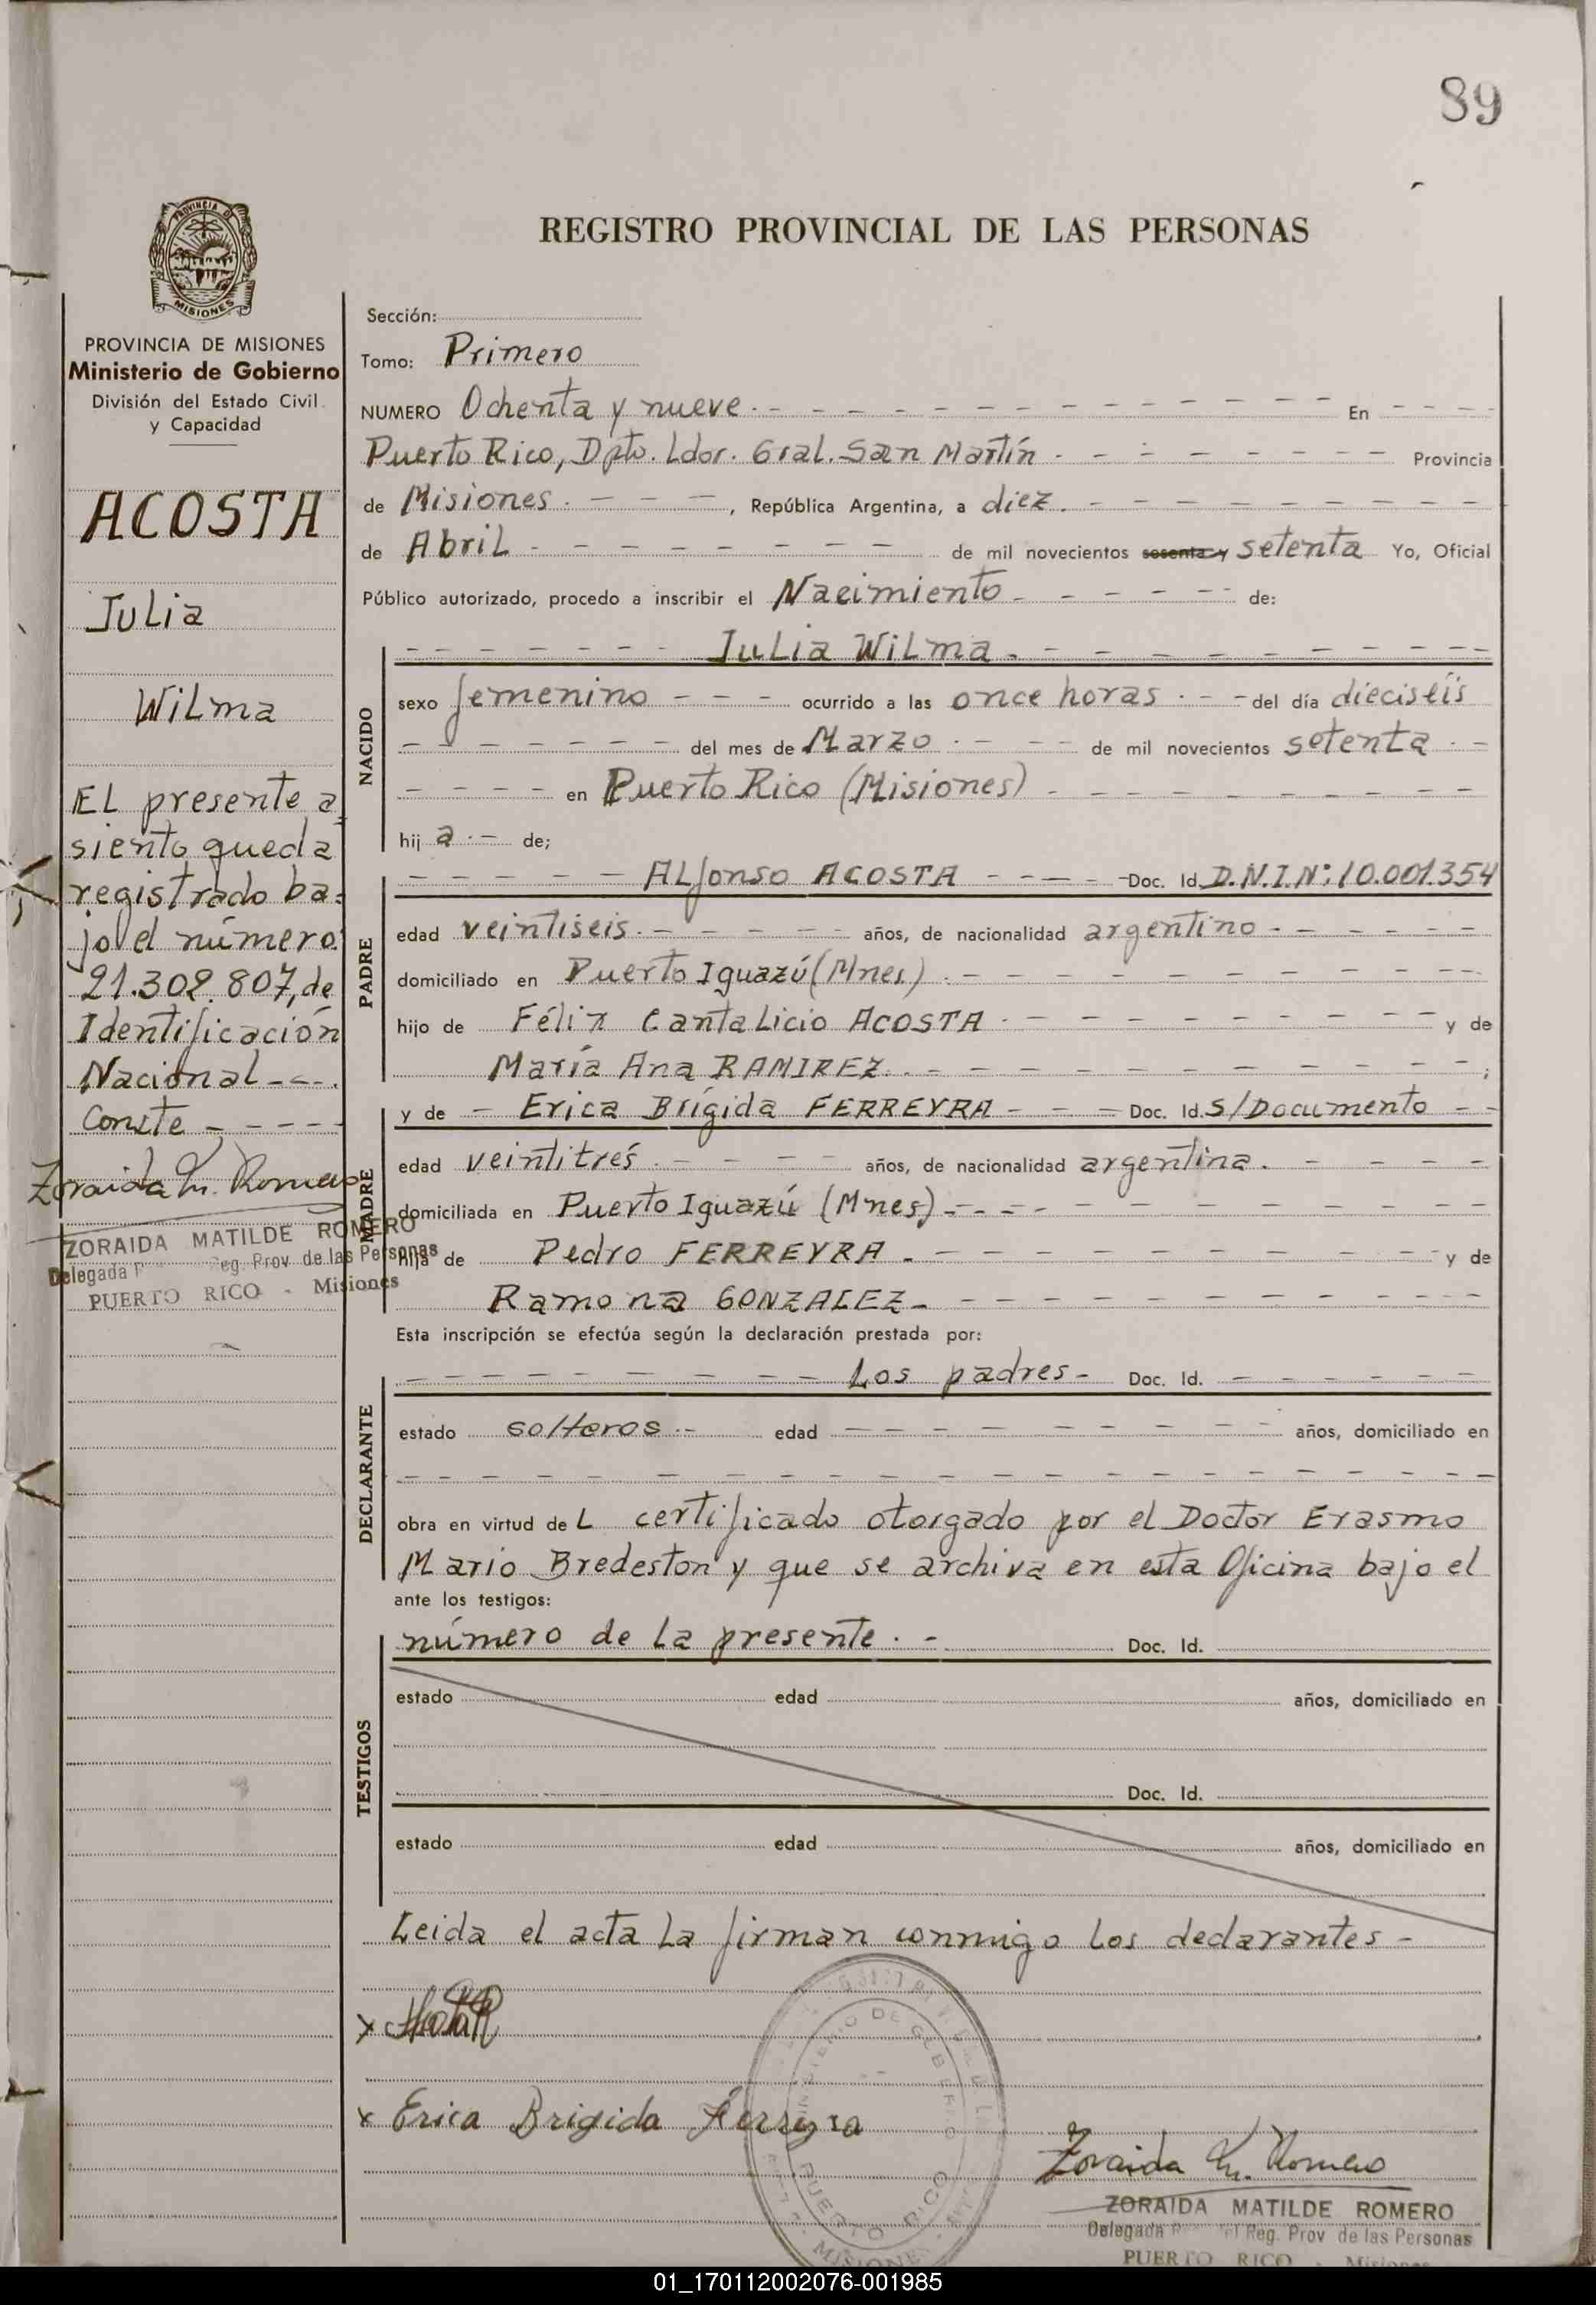 89
REGISTRO PROVINCIAL DE LAS PERSONAS
PROVINCIA DE
MISIONES
PROVINCIA DE MISIONES
Ministerio de Gobierno
División del Estado Civil
y Capacidad
ACOSTA
Julia
Wilma
El presente a
siento queda
registrado ba=
jo el número
21.302.807, de
Identificación
Nacional - - .
Conste - - - - -
Zoraida M. Romero
ZORAIDA MATILDE ROMERO
Delegada Reg. Prov. de las Personas
PUERTO RICO - Misiones
Sección:
Tomo: Primero
NUMERO Ochenta y nueve. - - - En - - -
Puerto Rico, Dpto. Ldor. Gral. San Martín . - - - Provincia
de Misiones. - - - , República Argentina, a diez. - - -
de Abril - - - de mil novecientos sesenta y setenta Yo, Oficial
Público autorizado, procedo a inscribir el Nacimiento - - - de:
NACIDO
- - - Julia Wilma. - - -
sexo femenino - - - ocurrido a las once horas . - - del día dieciséis
- - - del mes de Marzo . - - - de mil novecientos setenta . -
- - - en Puerto Rico (Misiones) - - -
hij a . - de;
PADRE
- - - Alfonso ACOSTA - - - Doc. Id. D.N.I.Nº: 10.001.354
edad veintiseis. - - - años, de nacionalidad argentino - - -
domiciliado en Puerto Iguazú (Mnes.) . - - -
hijo de Félix Cantalicio ACOSTA . - - - y de
María Ana RAMIREZ. - - - ;
MADRE
y de - Erica Brígida FERREYRA - - - Doc. Id. S/Documento - -
edad veintitrés . - - - años, de nacionalidad argentina. - - -
domiciliada en Puerto Iguazú (Mnes) - - -
hija de Pedro FERREYRA . - - - y de
Ramona GONZALEZ - - -
Esta inscripción se efectúa según la declaración prestada por:
DECLARANTE
- - - Los padres - Doc. Id. - - -
estado solteros . - edad - - - años, domiciliado en
- - -
obra en virtud de L certificado otorgado por el Doctor Erasmo
Mario Bredeston y que se archiva en esta Oficina bajo el
ante los testigos:
TESTIGOS
número de la presente . - Doc. Id.
estado edad años, domiciliado en
Doc. Id.
estado edad años, domiciliado en
Leida el acta la firman conmigo los declarantes -
x
x Erica Brigida Ferreyra
MINISTERIO DE GOBIERNO
PUERTO RICO
MISIONES
Zoraida M. Romero
ZORAIDA MATILDE ROMERO
Delegada Reg. Prov de las Personas
PUERTO RICO - Misiones
01_170112002076-001985